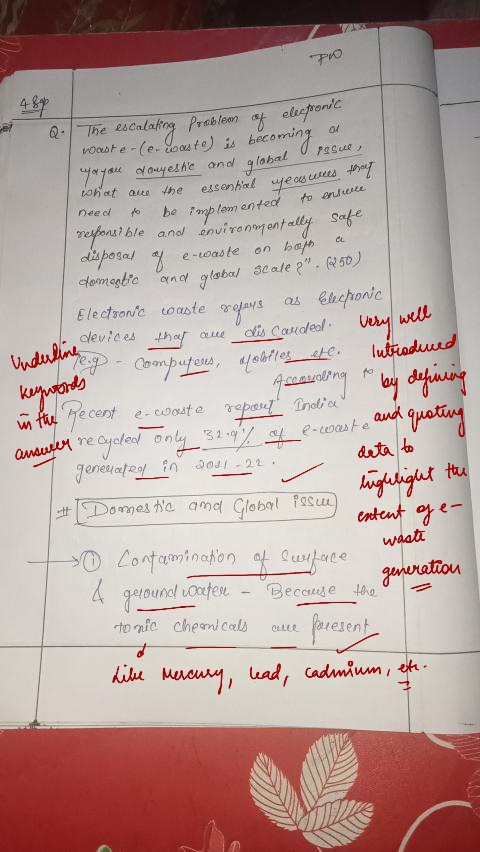 PTO
Q. The escalating Problem of electronic
waste-(e-waste) is becoming a
major domestic and global issue,
what are the essential measures that
need to be implemented to ensure
responsible and environmentally safe
disposal of e-waste on both a
domestic and global scale?". (250)
Electronic waste refers as Electronic
devices that are discarded.
(e.g) - Computers, Mobiles etc.
According to
Recent e-waste report India
recycled only 32.9% of e-waste
generated in 2021-22.
Underline
keywords
in the
answer
Very well
Introduced
by defining
and quoting
data to
highlight the
extent of e-
waste
generation
# Domestic and Global issue
→ ① Contamination of surface
& ground water - Because the
toxic chemicals are present
Like Mercury, lead, cadmium, etc.